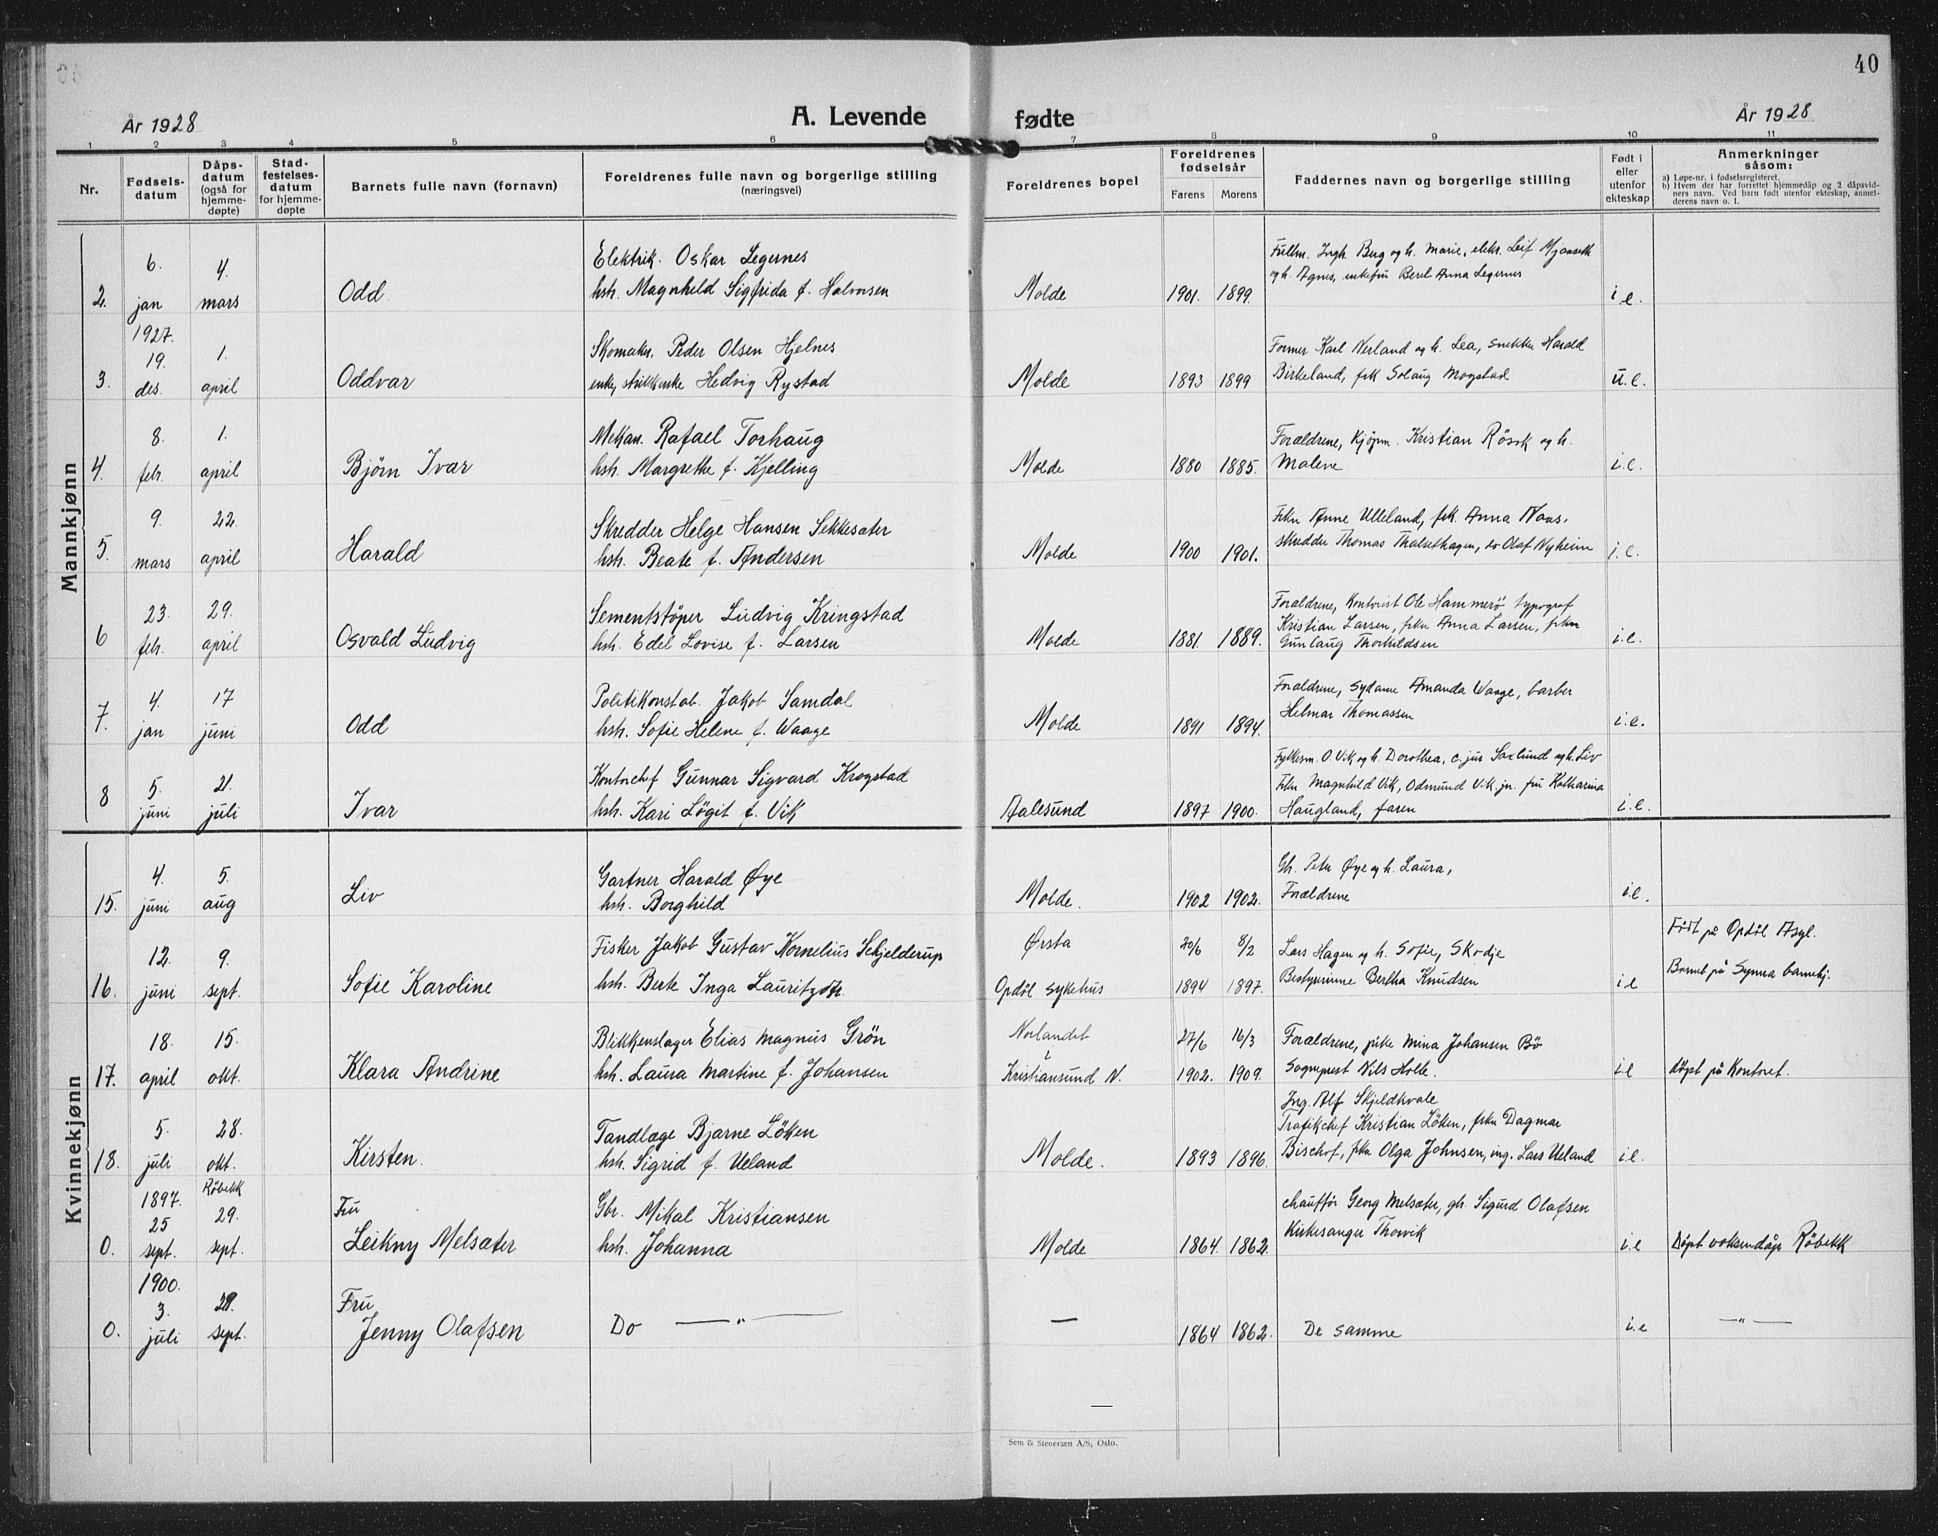 40
År 1928
A. Levende fødte
År 1928
1 2 3 4 5 6 7 8 9 10 11
Nr.
Fødselsdatum
Dåpsdatum (også for hjemmedøpte)
Stadfestelsesdatum for hjemmedøpte
Barnets fulle navn (fornavn)
Foreldrenes fulle navn og borgerlige stilling (næringsvei)
Foreldrenes bopel
Foreldrenes fødselsår
Farens Morens
Faddernes navn og borgerlige stilling
Født i eller utenfor ekteskap
Anmerkninger såsom:
a) Løpe-nr. i fødselsregisteret.
b) Hvem der har forrettet hjemmedåp og 2 dåpsvidners navn. Ved barn født utenfor ekteskap, anmelderens navn o. l.
Mannkjønn
2. 6. jan 4. mars Odd.
Elektrik. Oskar Legernes
hstr. Magnhild Sigfrida f. Halvorsen
Molde 1901. 1899.
Fullm. Ingb. Berg og h. Marie, elekr. Leif Mjanseth
og h. Agnes, enkefru Berel Anna Legernes
i.e.
3. 1927. 19. des. 1. april Oddvar
Skomaker. Peder Olsen Hjelnes
enke, Hedvig Rystad
Molde 1893 1899
Former Karl Nerland og h. Lea, snekker Harald
Birkeland, frk Solaug Mogstad
u.e.
4. 8. febr. 1. april Bjørn Ivar
Mekan. Rafael Torhaug
hstr. Margrethe f. Kjelling
Molde 1880 1885.
Forældrene, Kjøpm. Kristian Røsok og h.
Malene
i.e.
5. 9. mars 22. april Harald
Skredder Helge Hansen Sekkesæter
hstr. Beate f. Andersen
Molde 1900 1901.
Frkn Anne Ulleland, frk. Anna Naas,
skredder Thomas Thalsethagen, do Olaf Nyheim
i.e.
6 23. febr. 29. april Osvald Ludvig
Sementstøper Ludvig Kringstad
hstr. Edel Lovise f. Larsen
Molde 1881. 1889.
Forældrene, Kontorist Ole Hammerø, typograf
Kristian Larsen, frkn Anna Larsen, frkn
Gunlaug Thorkildsen
i.e.
7. 4. jan 17 juni Odd
Politikonstab. Jakob Samdal
hstr. Sofie Helene f. Waage
Molde 1891 1894.
Forældrene, Sydame Amanda Waage, barber
Helmar Thomassen
i.e.
8 5. juni 21. juli Ivar
Kontorchef Gunnar Sigvard Krogstad
hstr. Kari Løgit f. Vik
Aalesund 1897 1900.
Fylkesm. O. Vik og h. Dorothea, c. jur Saxlund og h. Liv
Frkn Magnhild Vik, Odmund Vik jn. fru Katharina
Haugland, faren
i.e.
Kvinnekjønn
15. 4. juni 5. aug Liv
Gartner Harald Øye
hstr. Borghild
Molde. 1902 1902.
Gb. Peter Øye og h. Laura,
Forældrene
i.e.
16. 12. juni 9. sept. Sofie Karoline
Fisker Jakob Gustav Kornelius Schjelderup
hstr. Berte Inga Lauritzdtr.
Ørsta
Opdøl sykehus
20/6 1894 8/2 1897.
Lars Hagen og h. Sofie, Skodje
Bestyrerinne Bertha Knudsen
i.e
Født på Opdøl Asyl.
Barnet på Synna barnehj.
17. 18. april 15. okt. Klara Andrine
Blikkenslager Elias Magnus Grøn
hstr. Laura Martine f. Johansen
Norlandet
i
Kristiansund N.
27/6 1902. 16/3 1909.
Forældrene, pike Mina Johansen Bø
Sogneprest Nils Holle.
i.e
døpt på Kontoret.
18. 5. juli 28. okt. Kirsten.
Tandlæge Bjarne Løken
hstr. Sigrid f. Ueland
Molde. 1893 1896.
Ing. Alf Skjeldhvale
Trafikchef Kristian Løken, frkn Dagmar
Bischof, frkn Olga Johnsen, ing. Lars Ueland
i.e.
0. 1897. 25 sept. Røbekk 29. sept.
Fru
Leikny Melsæter
Gbr. Mikal Kristiansen
hstr. Johanna
Molde 1864. 1862.
chauffør Georg Melsæter, gb. Sigurd Olafsen
Kirkesanger Thorvik
i.e
Døpt voksendåp Røbekk
0. 1900. 3. juli 29. sept.
Fru
Jenny Olafsen
Do — " —
— 1864 1862.
De samme
i.e
— " —
Sem & Stenersen A/S, Oslo.